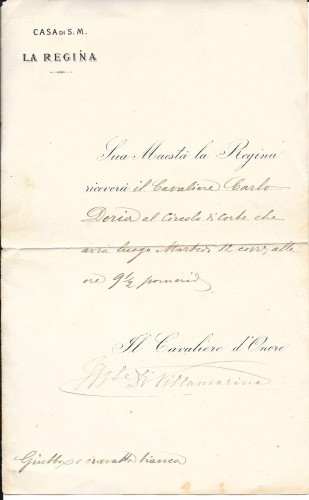 CASA DI S. M.
LA REGINA
Sua Maestà la Regina
riceverà il Cavaliere Carlo
Doria al Circolo di Corte che
avrà luogo Martedì 12 corr, alle
ore 9½ pomerid
Il Cavaliere d'Onore
Di Villamarina
e cravatta bianca